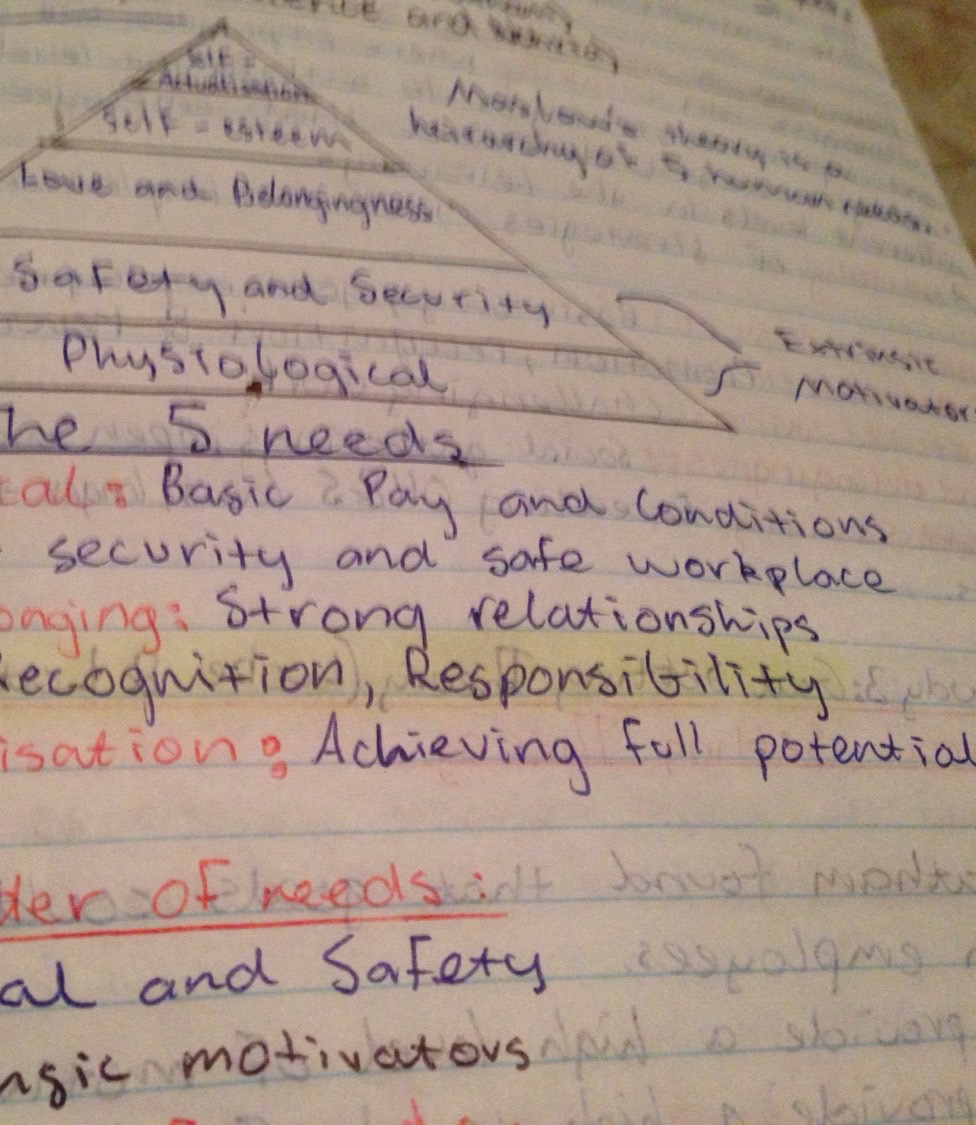 and
Self =
Actualisation
Self = esteem
theory is a
of 5 human
Love and Belongingness
Safety and Security
Extrinsic
Motivator
Physiological
he 5 needs
cal: Basic Pay and Conditions
security and safe workplace
onging: Strong relationships
Recognition, Responsibility
isation: Achieving full potential
der of needs:
al and Safety
nsic motivators